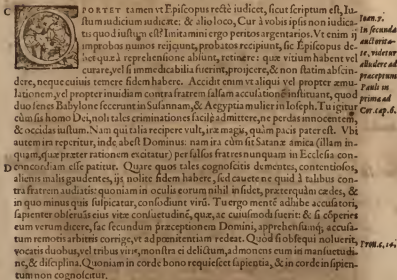 C OPORTET tamen vt Episcopus rectè iudicet, sicut scriptum est, Iu-
stum iudicium iudicate: & alio loco, Cur à vobis ipsis non iudica-
tis quod iustum est? Imitamini ergo peritos argentarios. Vt enim ij
improbos numos reijciunt, probatos recipiunt, sic Episcopus de-
bet quæ à reprehensione absunt, retinere: quæ vitium habent vel
curare, vel si immedicabilia fuerint, proijcere, & non statim abscin-
dere, neque cuiuis temere fidem habere. Accidit enim vt aliqui vel propter æmu-
lationem, vel propter inuidiam contra fratrem falsam accusationem instituant, quod
duo senes Babylone fecerunt in Susannam, & Aegyptia mulier in Ioseph. Tu igitur
cùm sis homo Dei, noli tales criminationes facilè admittere, ne perdas innocentem,
& occidas iustum. Nam qui talia recipere vult, iræ magis, quàm pacis pater est. Vbi
autem ira reperitur, inde abest Dominus: nam ira cùm sit Satanæ amica (illam in-
quam, quæ præter rationem excitatur) per falsos fratres nunquam in Ecclesia con-
D concordiam esse patitur. Quare quos tales cognoscitis dementes, contentiosos,
alienis malis gaudentes, ijs nolite fidem habere, sed cauete ne quid à talibus con-
tra fratrem audiatis: quoniam in oculis eorum nihil insidet, præterquàm cædes, &
in quo minus quis suspicatur, consodiunt virum. Tu ergo mentē adhibe accusatori,
sapienter obseruans eius vitæ consuetudinē, quæ, ac cuiusmodi fuerit: & si cōperies
eum verum dicere, fac secundum præceptionem Domini, apprehensumq́; accusa-
tum remotis arbitris corrige, vt ad pœnitentiam redeat. Quod si obsequi noluerit,
vocatis duobus, vel tribus viris, monstra ei delictum, admonens eum in mansuetudi-
ne, & disciplina. Quoniam in corde bono requiescet sapientia, & in corde insipien-
tum non cognoscitur.
Ioan.7.
In secunda
auctorita-
te, videtur
alludere ad
præceptum
Pauli in
prima ad
Cor.cap.6.
Prou.c.14.